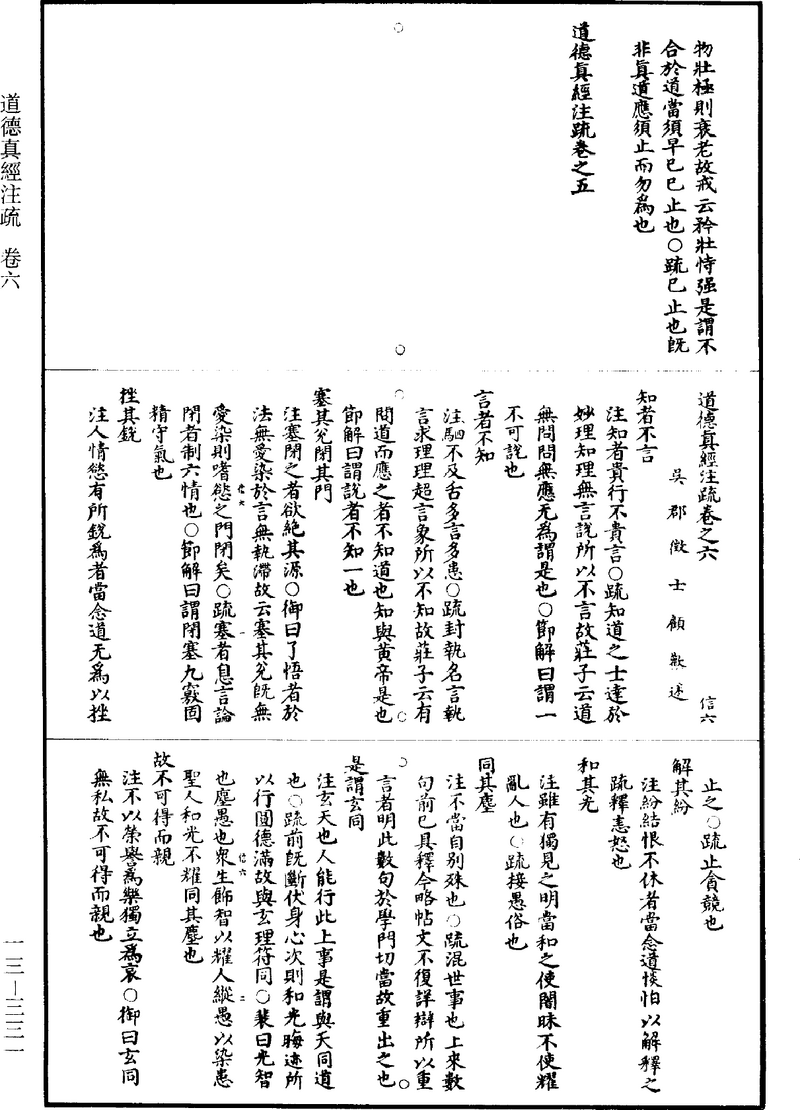 道德真經注疏 卷六
物壯極則衰老故戒云矜壯恃强是謂不
合於道當須早已已止也○疏已止也旣
非眞道應須止而勿爲也
道德眞經注疏卷之五
道德眞經注疏卷之六 信六
吳郡徵士顧歡述
知者不言
注知者貴行不貴言○疏知道之士達於
妙理知理無言說所以不言故莊子云道
無問問無應无為謂是也○節解曰謂一
不可說也
言者不知
注駟不及舌多言多患○疏封執名言執
言求理理超言象所以不知故莊子云有
問道而應之者不知道也知與黃帝是也
節解曰謂說者不知一也
塞其兊閉其門
注塞閉之者欲絕其源○御曰了悟者於
法無愛染於言無執滯故云塞其兊旣無
信六 一
愛染則嗜慾之門閉矣○疏塞者息言論
閉者制六情也○節解曰謂閉塞九竅固
精守氣也
挫其銳
注人情慾有所銳為者當念道无為以挫
止之○疏止貪競也
解其紛
注紛結恨不休者當念道惔怕以解釋之
疏釋恚怒也
和其光
注雖有獨見之明當和之使闇昧不使耀
亂人也○疏接愚俗也
同其塵
注不當自别殊也○疏混世事也上來數
句前已具釋今略帖文不復詳辯所以重
言者明此數句於學門切當故重出之也
是謂玄同
注玄天也人能行此上事是謂與天同道
也○疏前旣斷伏身心次則和光晦迹所
以行圓德滿故與玄理符同○裴曰光智
信六 二
也塵愚也衆生飾智以耀人縱愚以染患
聖人和光不耀同其塵也
故不可得而親
注不以榮譽爲樂獨立爲哀○御曰玄同
無私故不可得而親也
一三—三三一